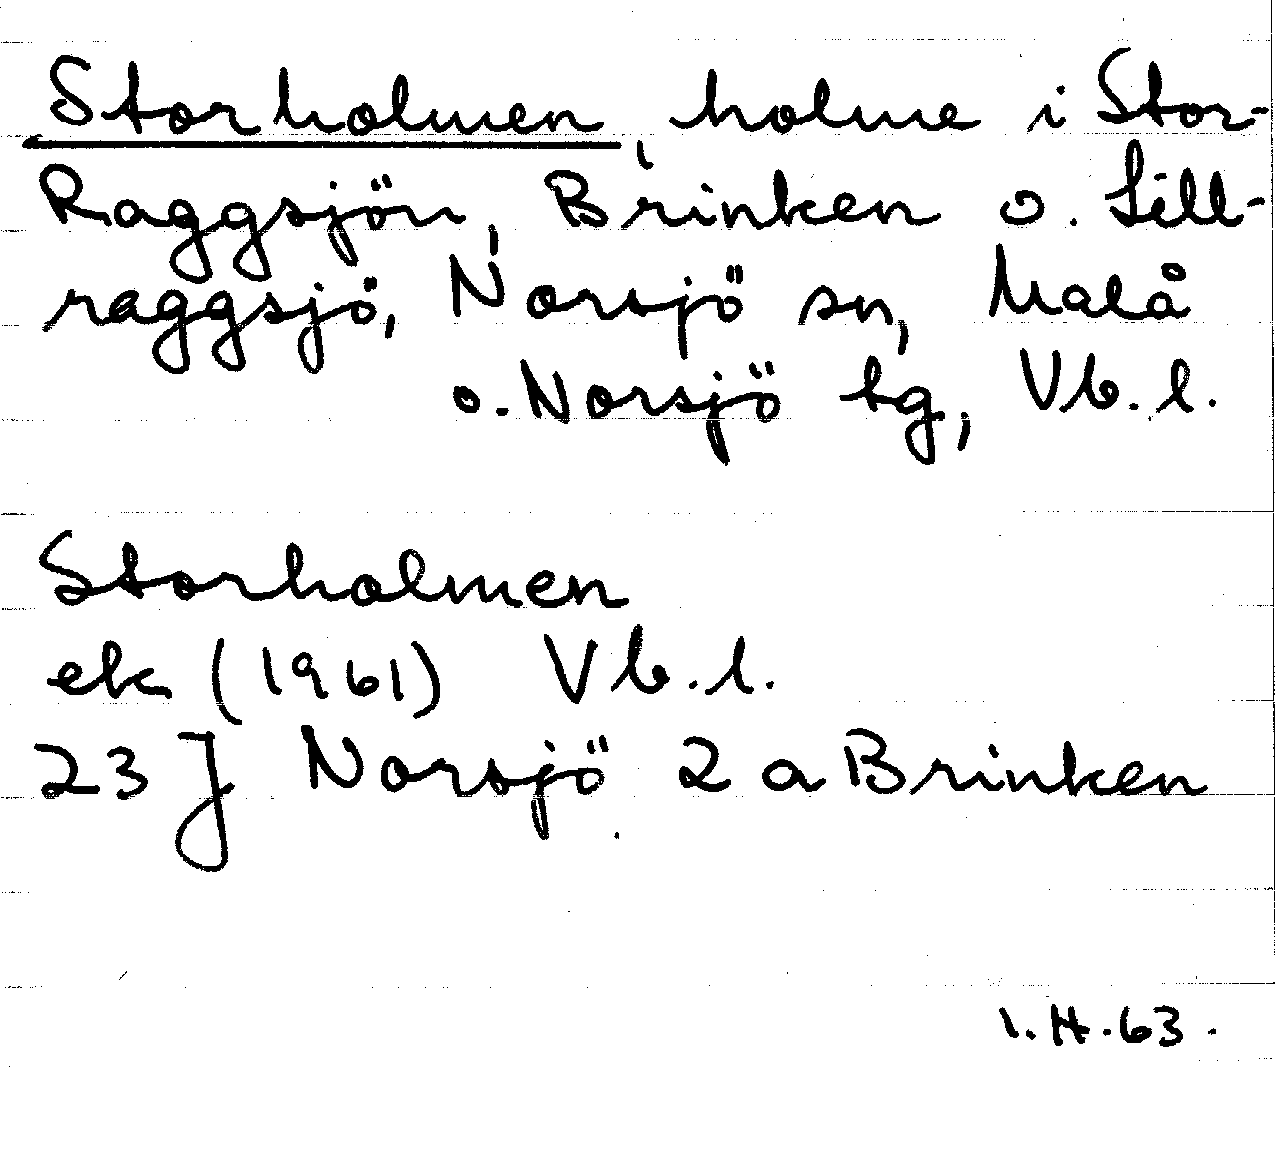 Storholmen, holme i Stor-
Raggsjön, Brinken o. Lill-
raggsjö, Norsjö sn, Malå
o. Norsjö tg, Vb. l.
Storholmen
ek (1961) Vb. l.
23 J Norsjö 2 a Brinken
I. H. 63.